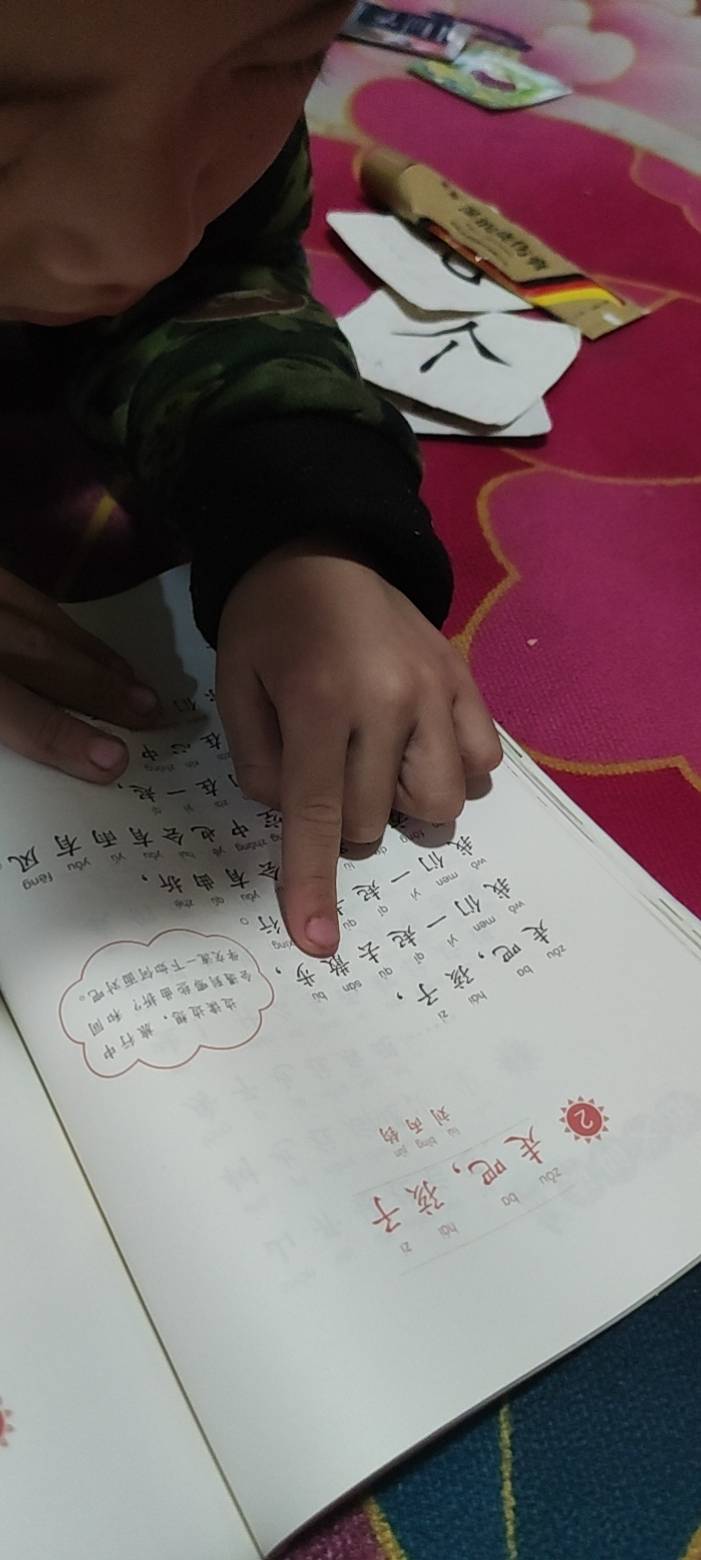 个
zǒu ba hái zi
2 走吧，孩子
liú bǐng jūn
刘丙钧
zǒu ba hái zi
走吧，孩子，
wǒ men yì qǐ qù sàn bù
我们一起去散步，
wǒ men yì qǐ qù
我们一起 行。
yǒu qū zhé
会有曲折，
zhōng yě huì yǒu yǔ yǒu fēng
空中也会有雨有风。
zài yì qǐ
在一起，
zài xīn zhōng
在心中
们
边读边想，旅行中
会遇到哪些曲折？和同
学交流一下如何面对吧。